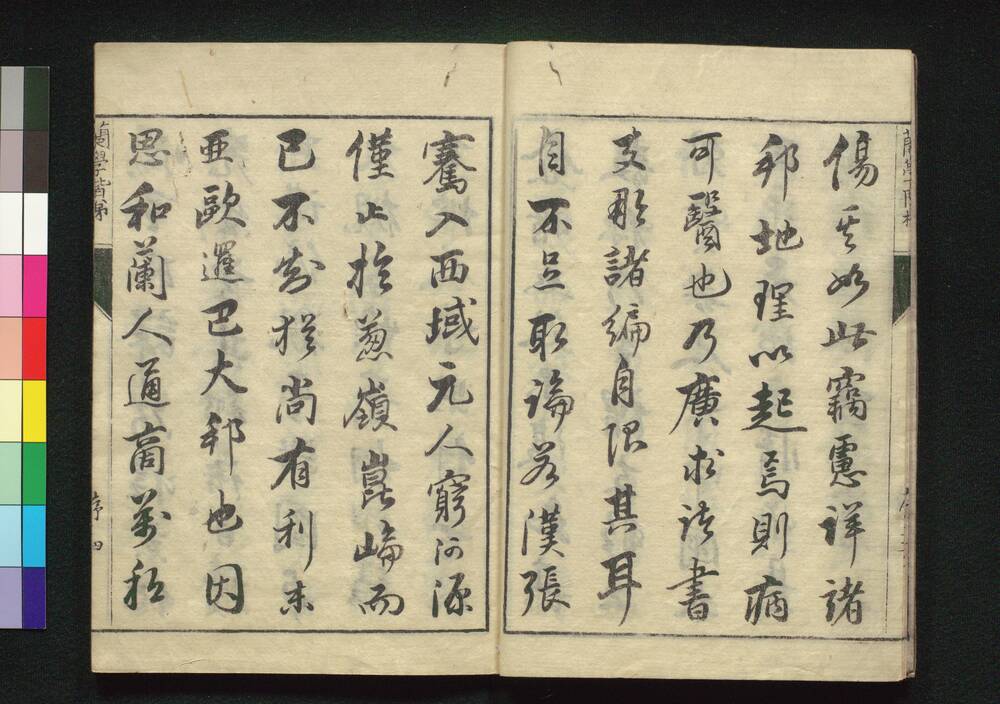 傷其如此竊慮詳諸
邦地理以起焉則病
可醫也乃廣求諸書
支那諸編自限其耳
目不足取論若漢張
騫入西域元人窮河源
僅止於葱嶺崑崙而
已不知猶尚有利未
亜歐邏巴大邦也因
思和蘭人通商萬和
蘭學階梯
序 四